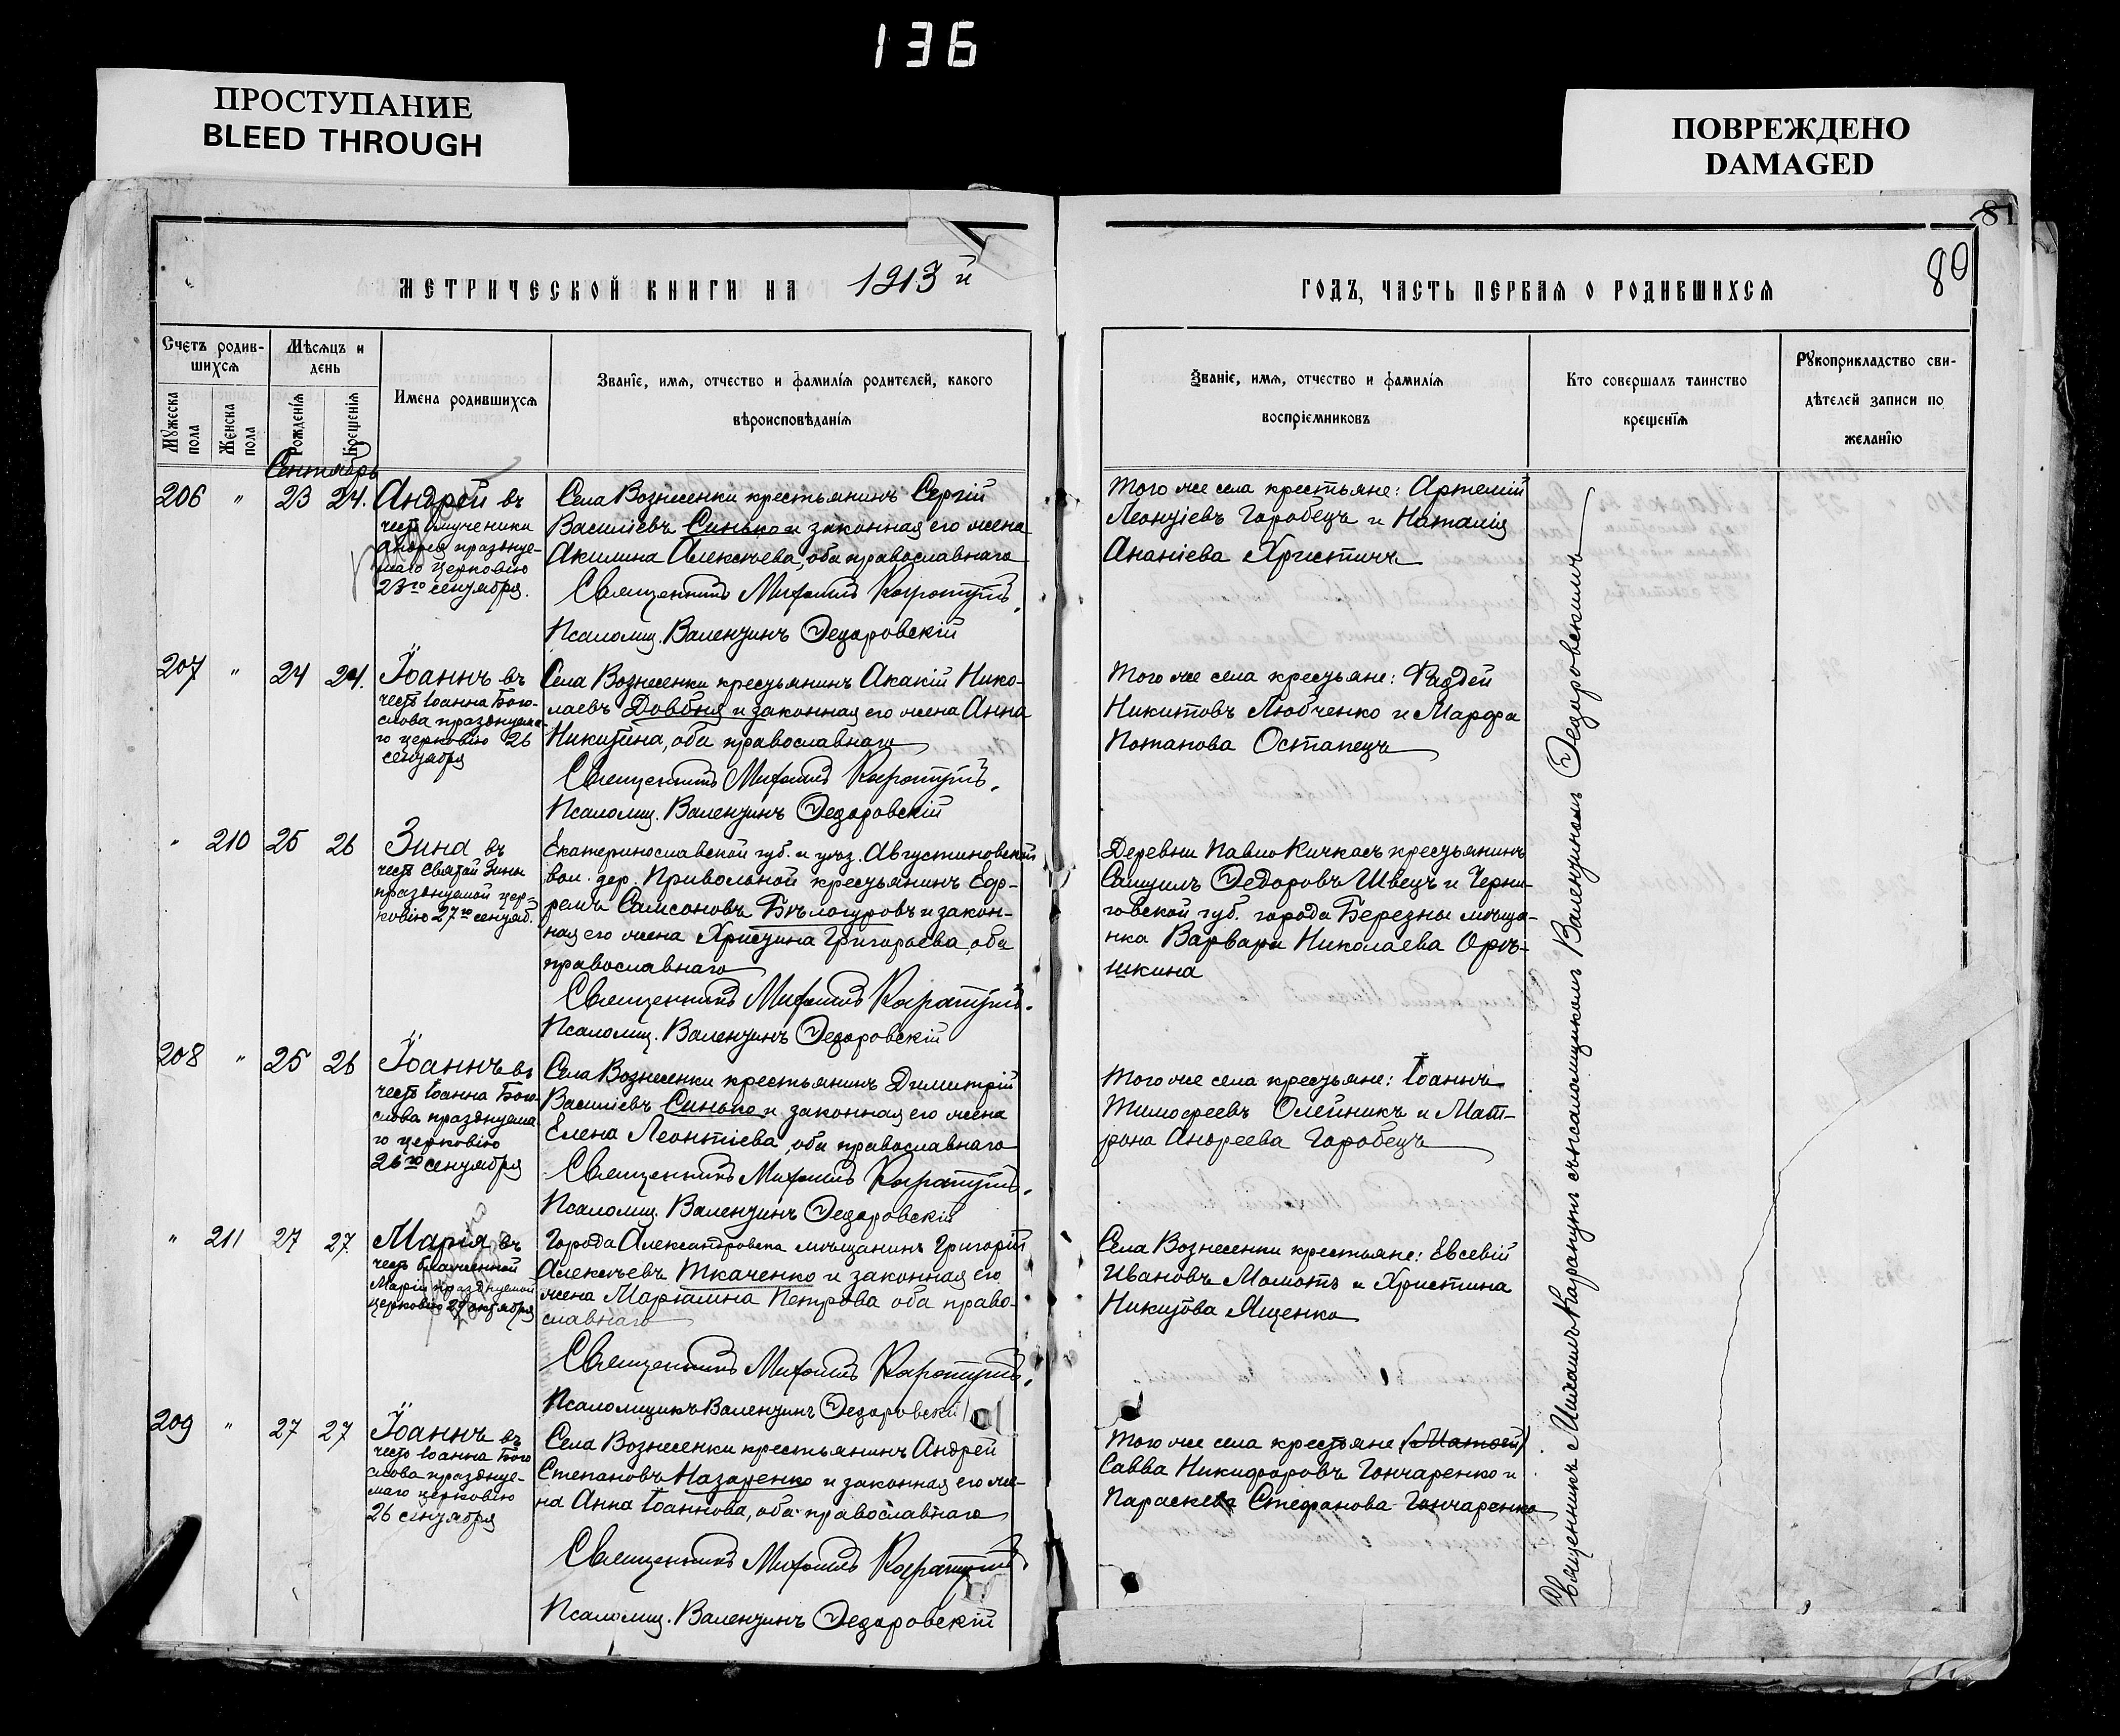 136
ПРОСТУПАНИЕ
BLEED THROUGH
ПОВРЕЖДЕНО
DAMAGED
81
80
МЕТРИЧЕСКОЙ КНИГИ НА 1913 й
ГОДЪ, ЧАСТЬ ПЕРВАЯ О РОДИВШИХСЯ
Счетъ родив-
шихся
Мужеска
пола
Женска
пола
Мѣсяцъ и
день
Рожденія
Крещенія
Имена родившихся
Званіе, имя, отчество и фамилія родителей, какого
вѣроисповѣданія
Званіе, имя, отчество и фамилія
воспріемниковъ
Кто совершалъ таинство
крещенія
Рукоприкладство сви-
дѣтелей записи по
желанію
Сентябрь
206 " 23 24.
Андрей въ
честь мученика
Андрея празднуе-
маго церковію
23го сентября.
Села Вознесенки крестьянинъ Сергій
Василіевъ Синько и законная его жена
Акилина Алексѣева, оба православнаго
Священникъ Михаилъ Карапутъ.
Псаломщ. Валентинъ Федоровскій
Того же села крестьяне: Артемій
Леонтіевъ Горобецъ и Наталія
Ананіева Христичъ
207 " 24 24.
Іоаннъ въ
честь Іоанна Бого-
слова празднуема-
го церковію 26
сентября
Села Вознесенки крестьянинъ Акакій Нико-
лаевъ Довбня и законная его жена Анна
Никитина, оба православнаго
Священникъ Михаилъ Карапутъ.
Псаломщ. Валентинъ Федоровскій
Того же села крестьяне: Фаддей
Никитовъ Любченко и Марфа
Потапова Остапецъ
" 210 25 26
Зина въ
честь Святой Зины
празднуемой цер-
ковію 27го сентяб.
Екатеринославской губ. и уѣз. Августиновской
вол. дер. Привольной крестьянинъ Еф-
ремъ Самсоновъ Бѣлогуровъ и закон-
ная его жена Христина Григорьева, оба
православнаго
Священникъ Михаилъ Карапутъ.
Псаломщ. Валентинъ Федоровскій
Деревни Павло Кичкасъ крестьянинъ
Самуилъ Федоровъ Швецъ и Черни-
говской губ. города Березны мѣща-
нка Варвара Николаева Орѣ-
шкина
208 " 25 26
Іоаннъ въ
честь Іоанна Бого-
слова празднуема
го церковію
26го сентября
Села Вознесенки крестьянинъ Димитрій
Василіевъ Синько и законная его жена
Елена Леонтіева, оба православнаго
Священникъ Михаилъ Карапутъ.
Псаломщ. Валентинъ Федоровскій
Того же села крестьяне: Іоаннъ
Тимофеевъ Олейникъ и Мат-
рона Андреева Горобецъ
" 211 27 27
Марія въ
честь блаженной
Маріи празднуемой
церковію 29 октября
Города Александровска мѣщанинъ Григорій
Алексѣевъ Ткаченко и законная его
жена Маріамна Петрова оба право-
славнаго
Священникъ Михаилъ Карапутъ.
Псаломщикъ Валентинъ Федоровскій
Села Вознесенки крестьяне: Евсевій
Ивановъ Момотъ и Христина
Никитова Яценко
209 " 27 27
Іоаннъ въ
честь Іоанна Бого
слова празднуе-
маго церковію
26 сентября
Села Вознесенки крестьянинъ Андрей
Степановъ Назаренко и законная его же-
на Анна Іоаннова, оба православнаго
Священникъ Михаилъ Карапутъ.
Псаломщ. Валентинъ Федоровскій
Того же села крестьяне (Матвей)
Савва Никифоровъ Гончаренко и
Параскева Стефанова Гончаренко
Священникъ Михаилъ Карапутъ съ псаломщикомъ Валентиномъ Федоровскимъ